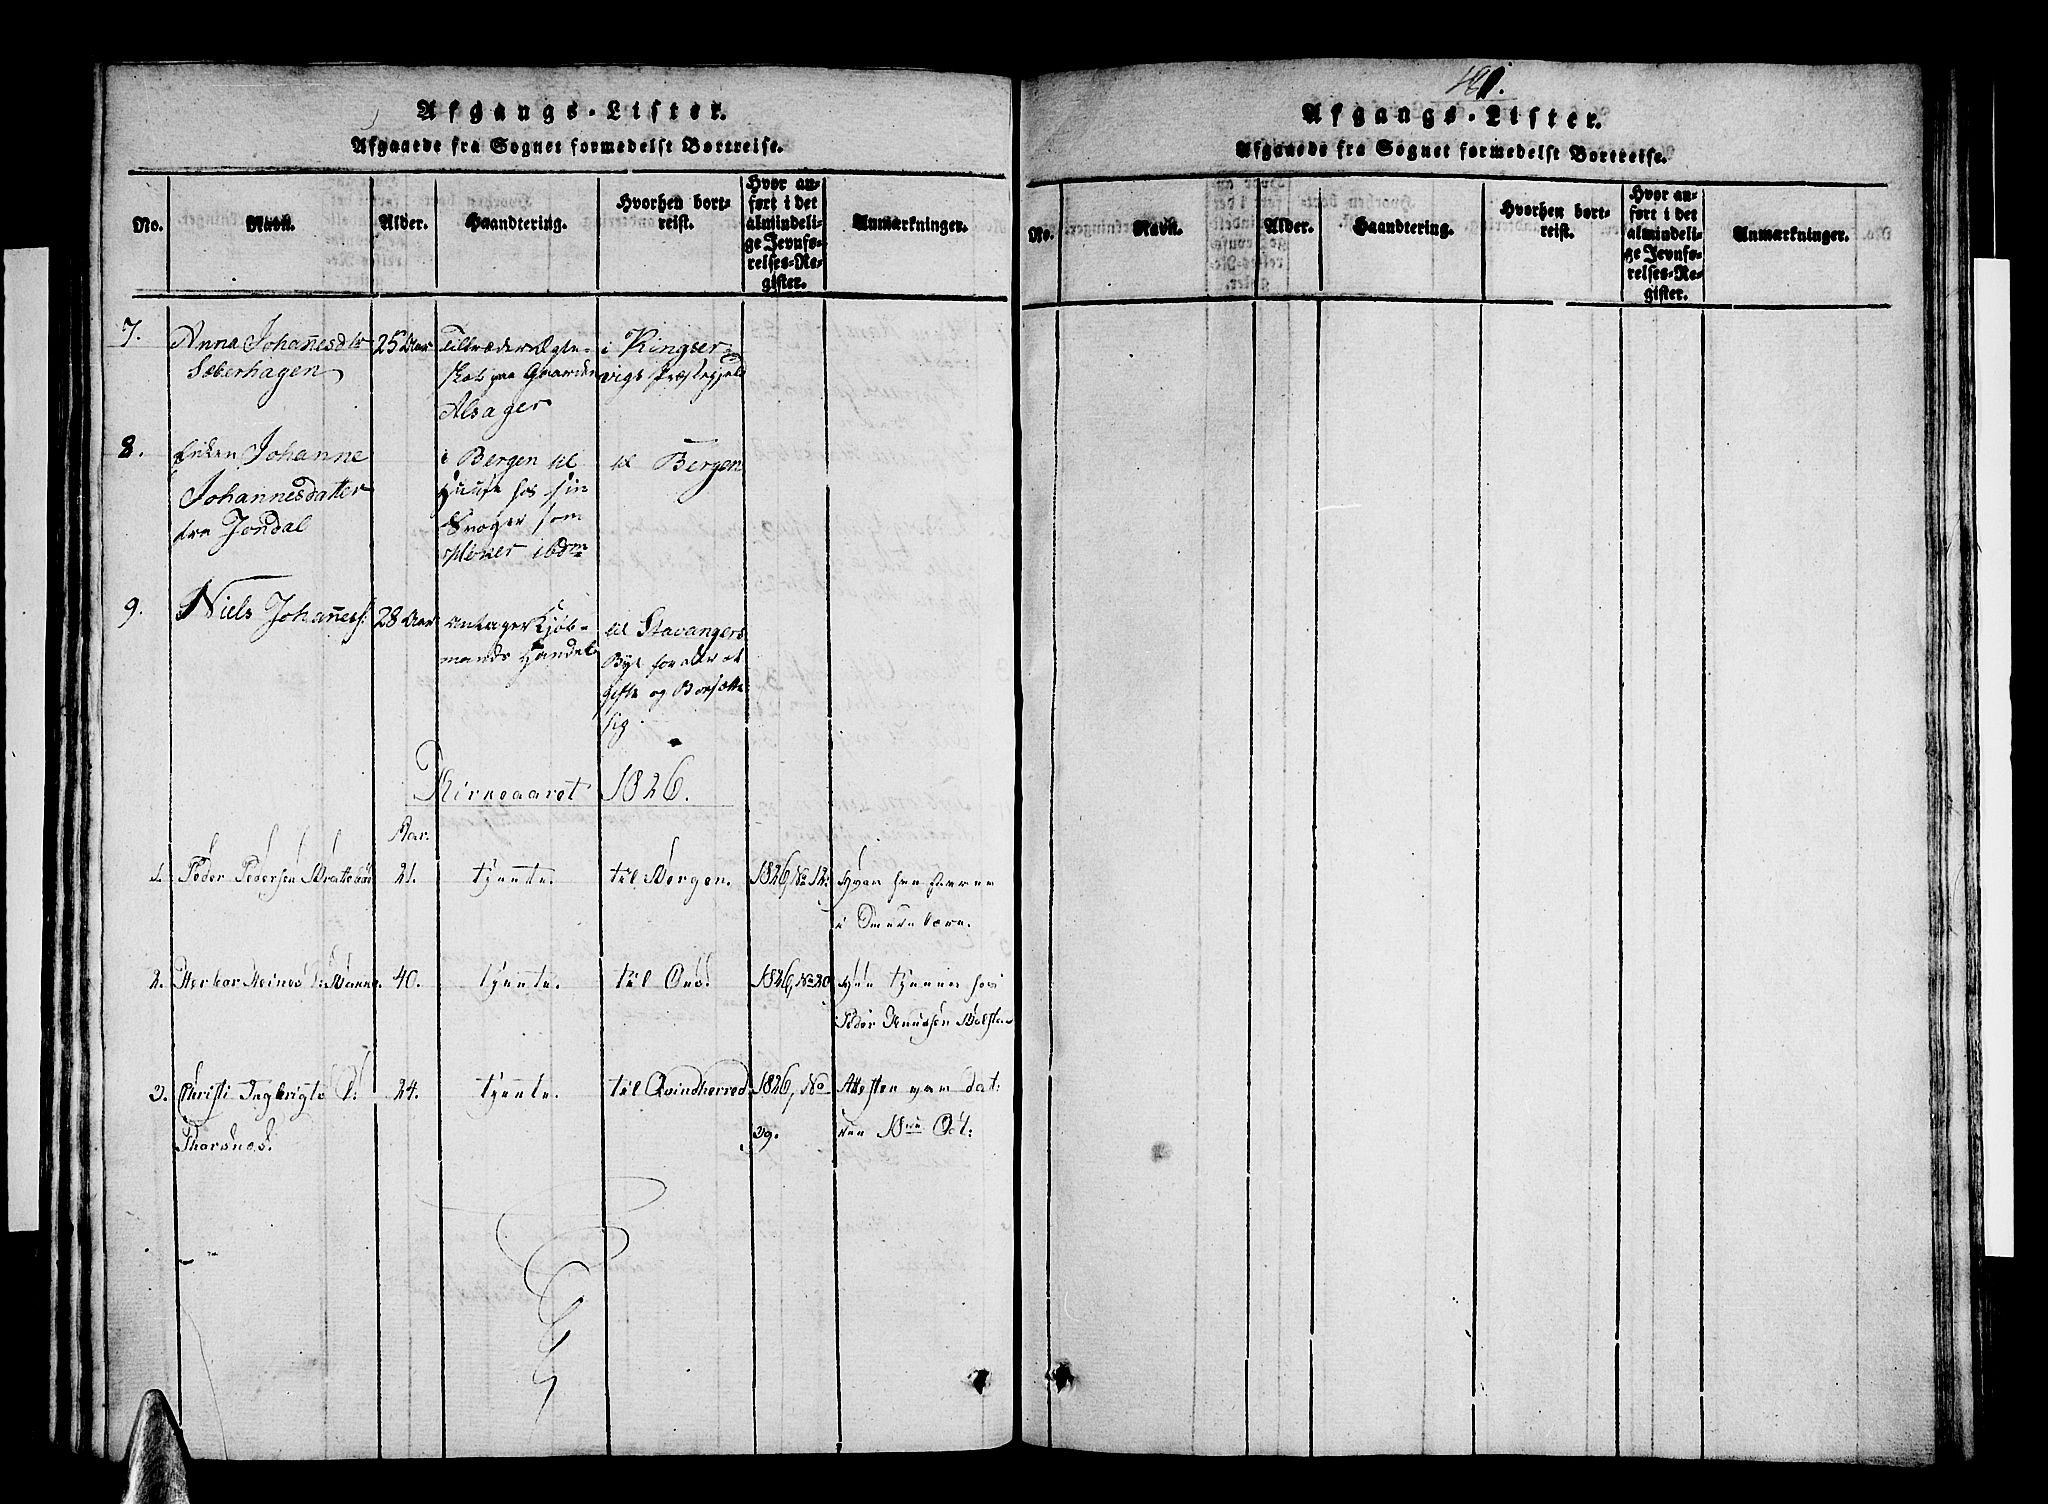 Afgangs-Lister.
Afgaaede fra Sognet formedelst Bortreise.
No.
Navn.
Alder.
Haandtering.
Hvorhen bort-
reist.
Hvor an-
ført i det
almindeli-
ge Jevnfø-
relses-Re-
gister.
Anmærkninger.
7.
Anna Johan̄esdtr
Sæberhagen
25 Aar
Tiltræder Ægte-
skab paa Gaarden
Alsager
i Kingser-
vigs Præstegjeld
8.
Enken Johanne
Johannesdatter
fra Jondal
i Bergen til
Huuse hos sin
Svoger som
tjener ibdm
til Bergen
9.
Niels Johan̄ess:
28 Aar
antager Kjøb-
mands Handel
til Stavangers
Bye for der at
gifte og
sig.
Kirkeaaret 1826.
Aar.
1.
Peder Pedersen Brattebøe
21.
tjente.
til Bergen.
1826, No 12.
i
2.
40.
tjente.
til
1826, No 20
Han tjener hos
Peder Knudsen
3.
Christi Ingbrigts D:
Thorsnes.
24.
tjente.
til Qvindherred
1826, No
39.
Attesten var dat:
den 18de Oct:
401.
Afgangs-Lister.
Afgaaede fra Sognet formedelst Bortreise.
No.
Navn.
Alder.
Haandtering.
Hvorhen bort-
reist.
Hvor an-
ført i det
almindeli-
ge Jevnfø-
relses-Re-
gister.
Anmærkninger.